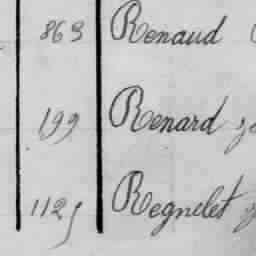 869 Renaud
199 Renard
1125 Regnelet